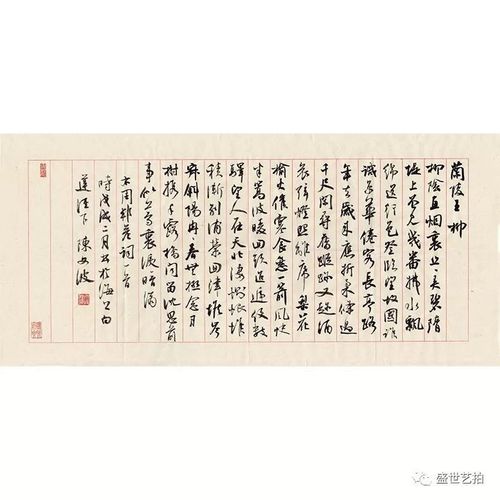 蘭陵王 柳
柳陰直烟裏絲絲弄碧隋
堤上曾見幾番拂水飄
綿送行色登臨望故國誰
識華倦客長亭路
年去歲來應折柔條過
千尺閑尋舊蹤跡又趁酒
哀弦燈照離席 梨花
榆火催寒食愁一箭風快
半篙波暖回頭迢遞便數
驛望人在天北悽惻恨堆
積漸別浦縈回津堠岑
寂斜陽冉冉春無極念月
榭携手露橋聞笛沈思前
事似夢裏淚暗滴
周邦彦詞一首
時戊戌二月書於海上白
蓮涇下 陳波
盛世艺拍